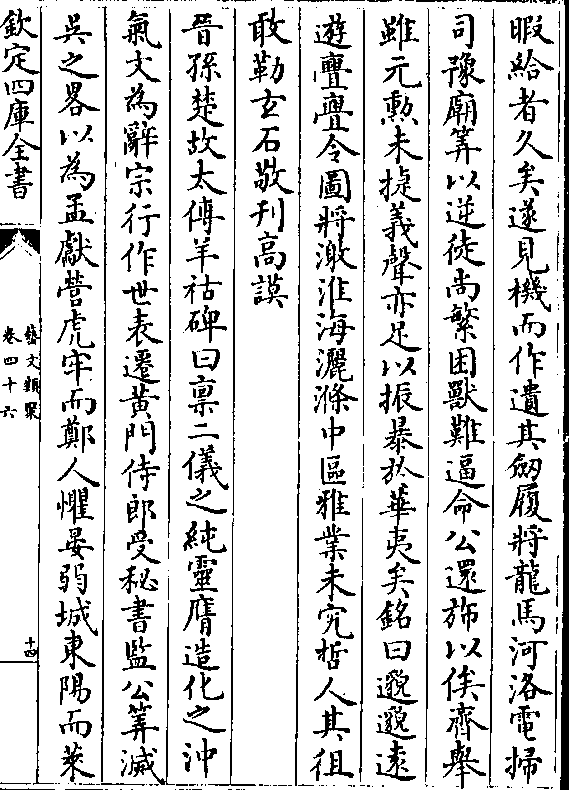 暇給者久矣遂見機而作遺其劒履將龍馬河洛電掃
司豫廟筭以逆徒尚繁困獸難逼命公還斾以俟齊舉
雖元勲未㨗義聲亦足以振暴於華夷矣銘曰邈邈遠
遊亹亹令圖將激淮海灑滌中區雅業未究哲人其徂
敢勒玄石敬刊高謨
晉孫楚故太傅羊祜碑曰稟二儀之純靈膺造化之沖
氣文為辭宗行作世表遷黃門侍郎受秘書監公筭滅
吳之畧以為孟獻營虎牢而鄭人懼晏弱城東陽而萊
欽定四庫全書
藝文類聚
卷四十六
十四